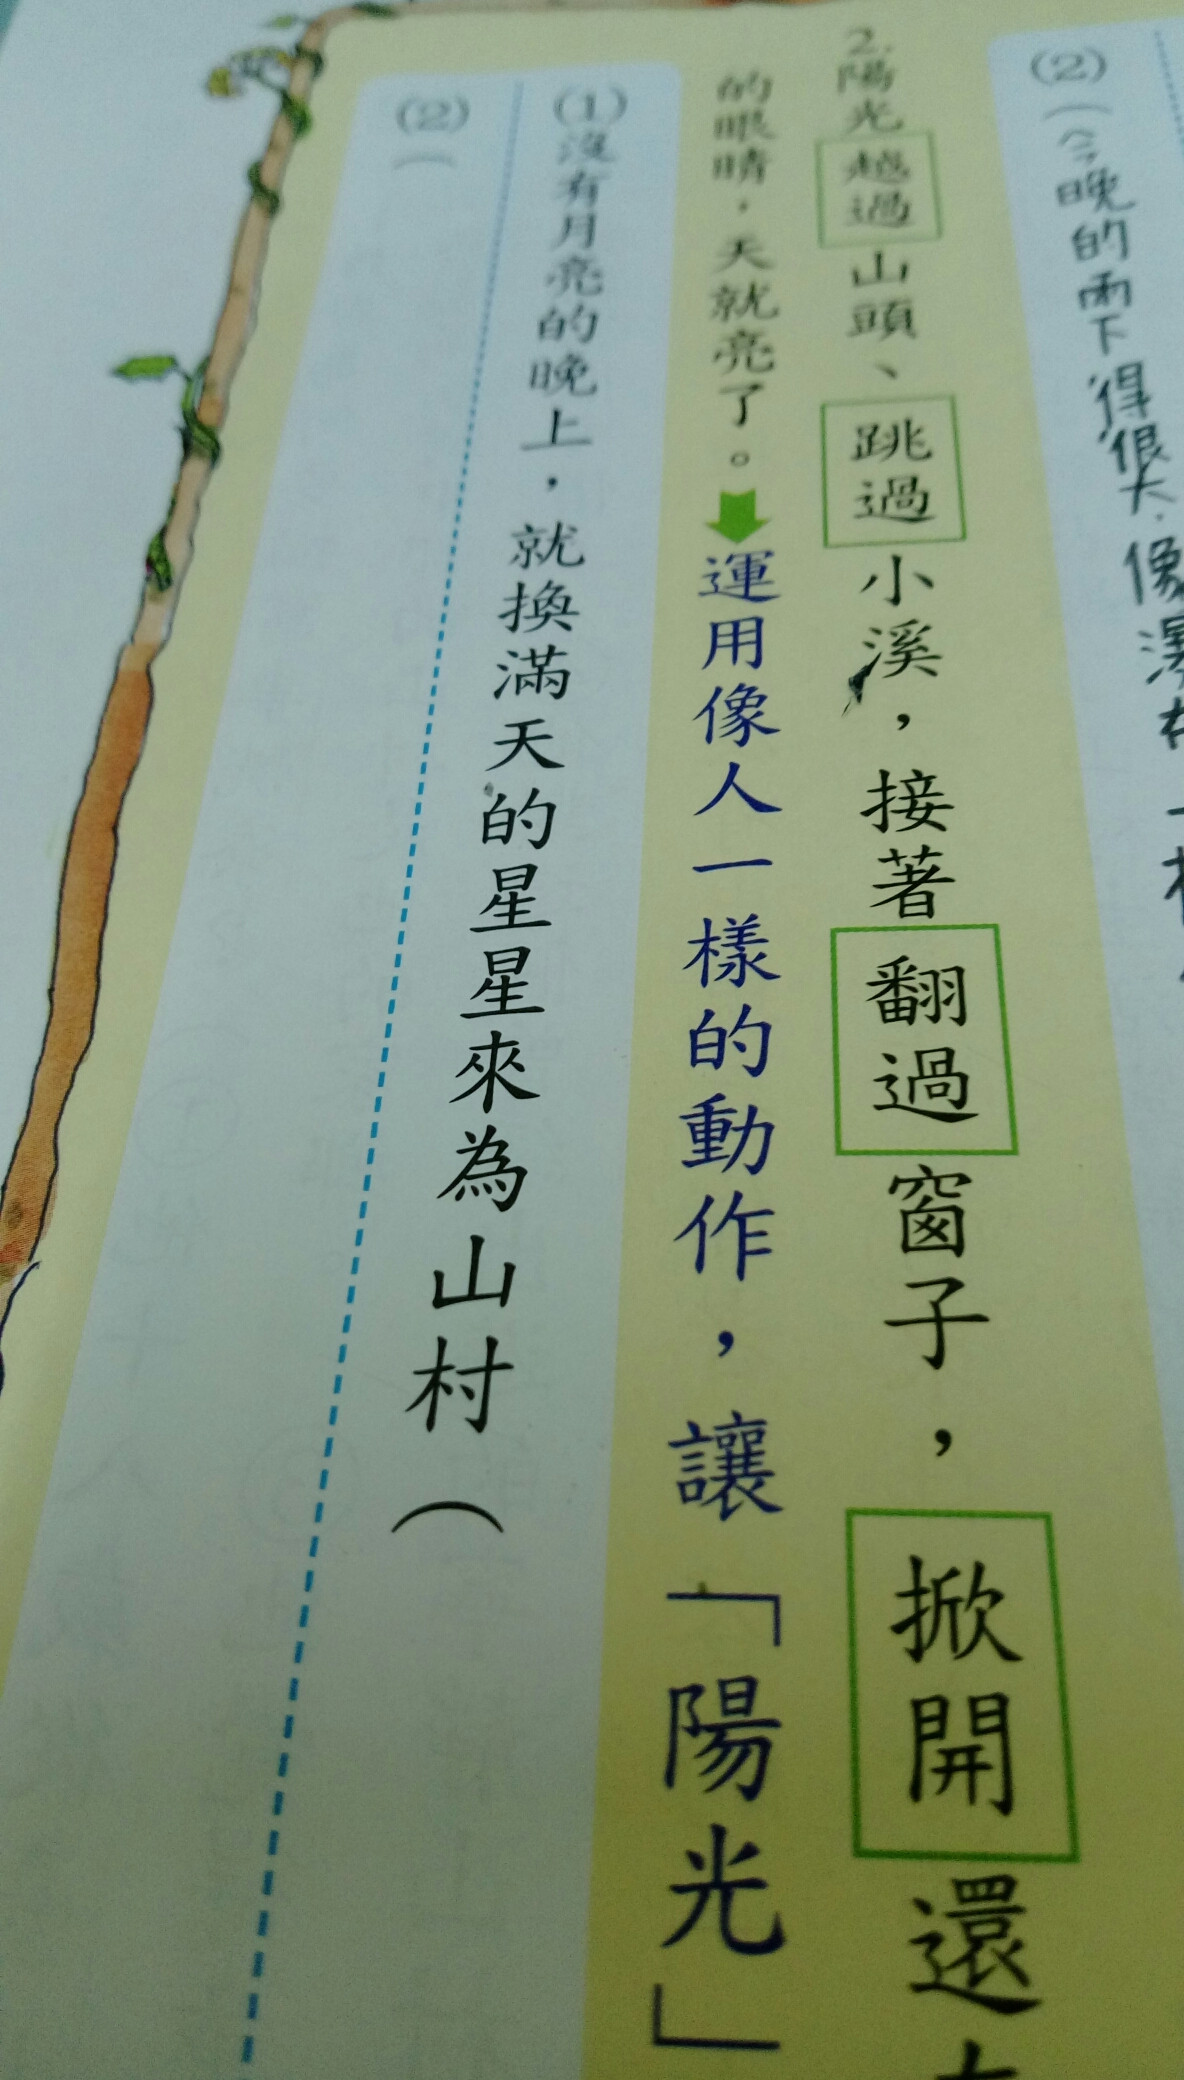 (2)(今晚的雨下得很大,像瀑布一
2.陽光越過山頭、跳過小溪,接著翻過窗子,掀開還
的眼睛,天就亮了。運用像人一樣的動作,讓「陽光」
(1)沒有月亮的晚上,就換滿天的星星來為山村(
(2)(